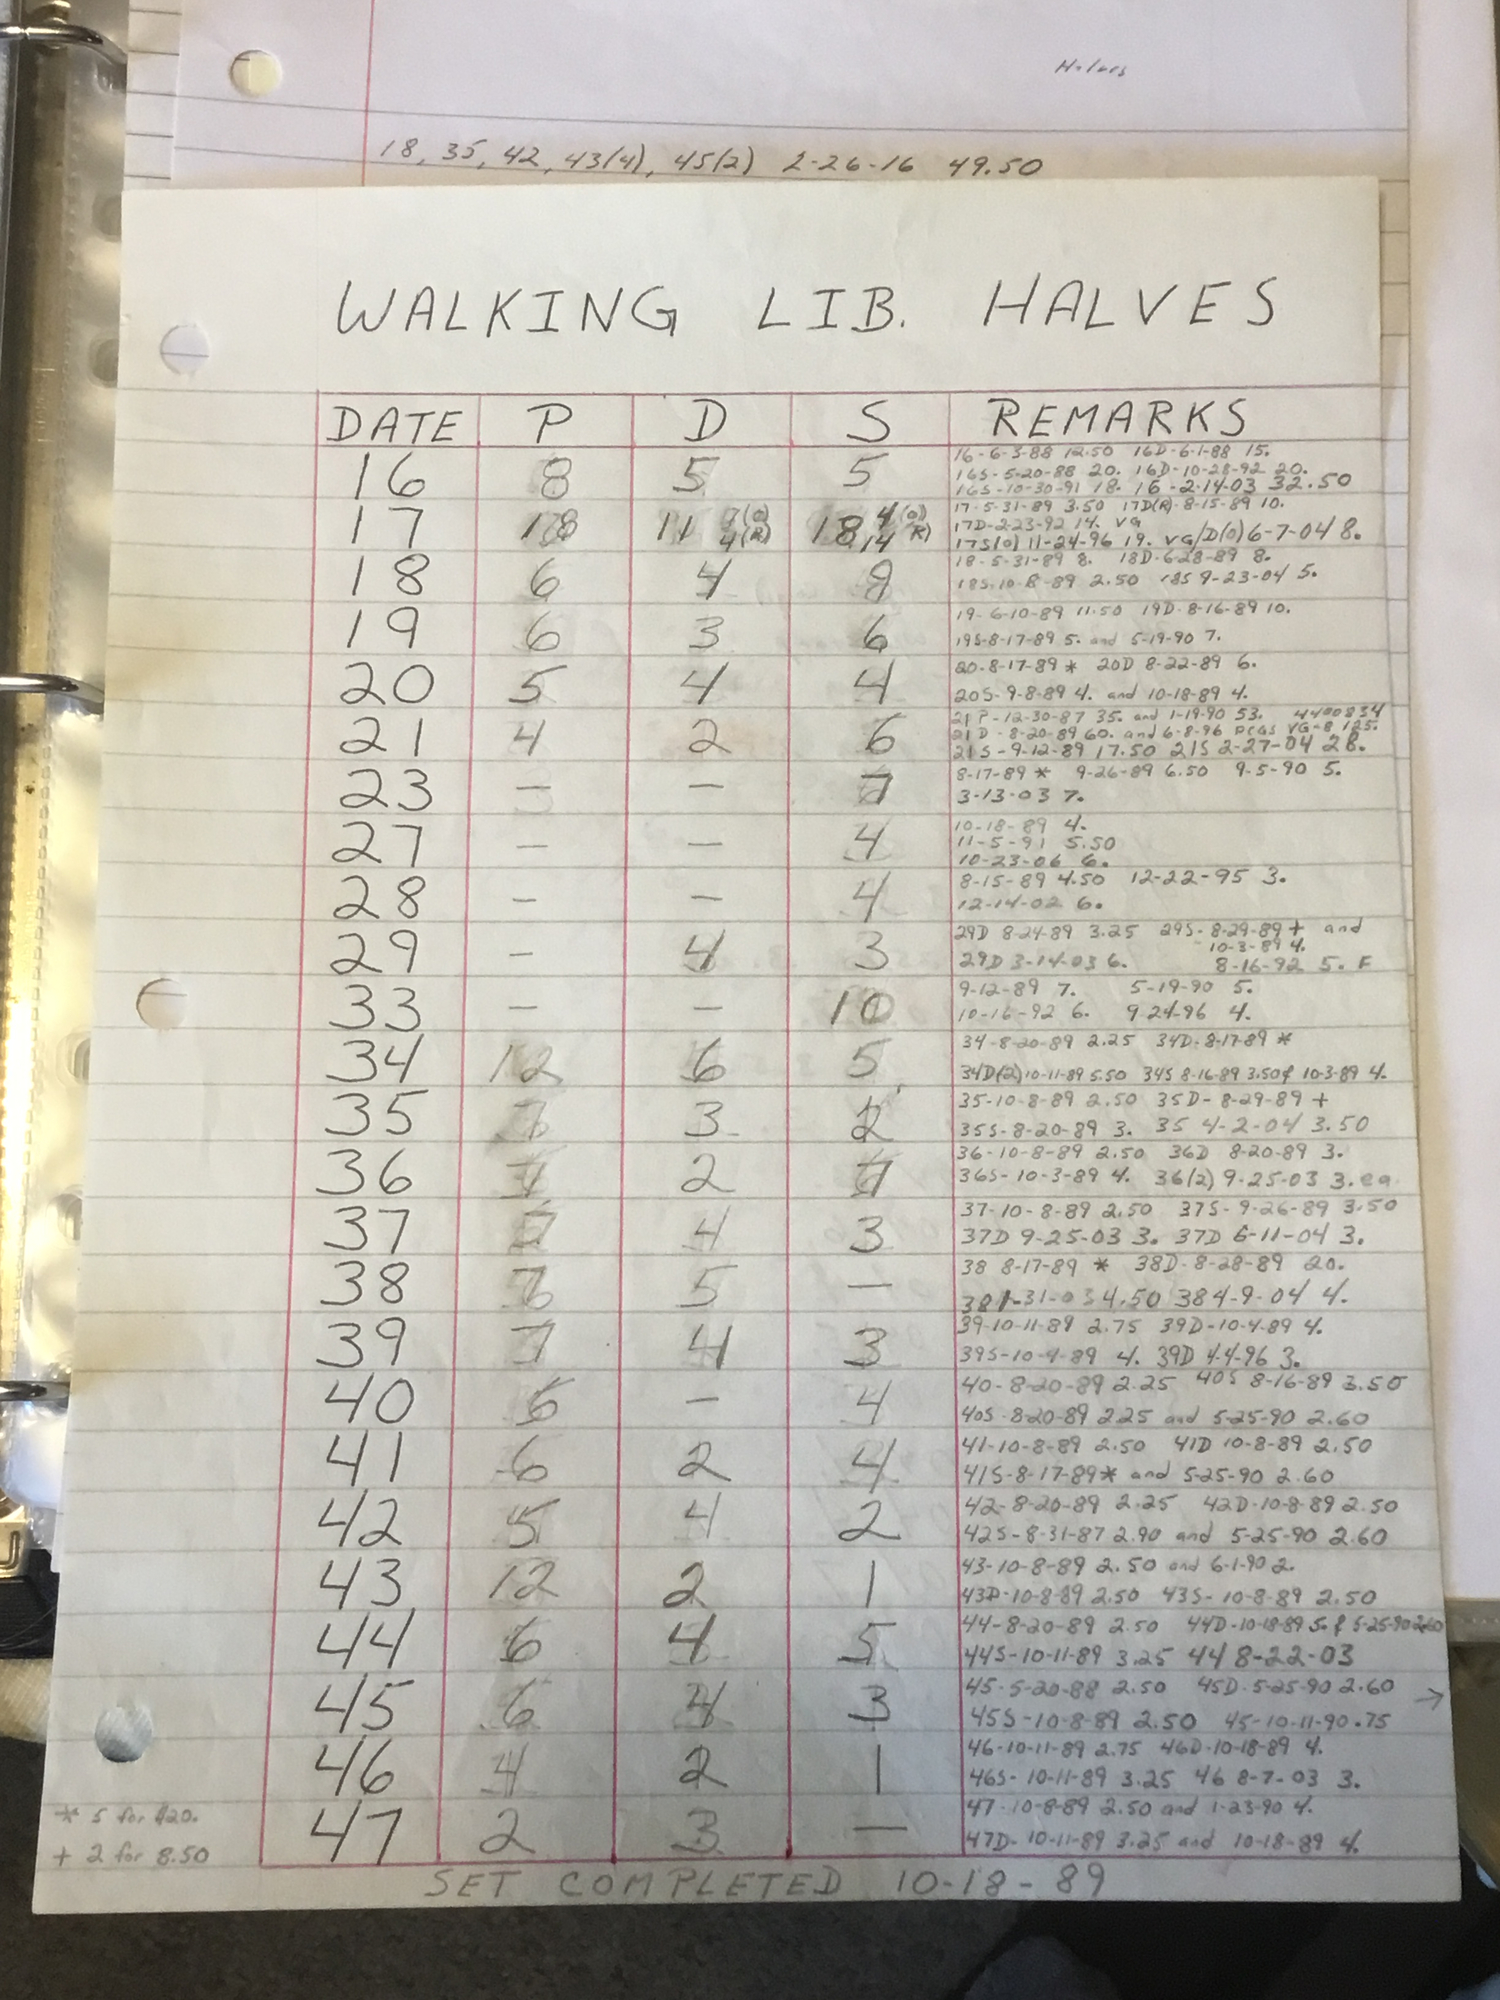 Halves
18, 35, 42, 43(4), 45(2) 2-26-16 49.50
WALKING LIB. HALVES
DATE P D S REMARKS
16 8 5 5
16-6-3-88 12.50 16D-6-1-88 15.
16S-5-20-88 20. 16D-10-28-92 20.
16S-10-30-91 18. 16-2-14-03 32.50
17 18 11 7(O) 4(R) 18 4(O) 14 R)
17-5-31-89 3.50 17D(R)-8-15-89 10.
17D-2-23-92 14. VG
17S(O) 11-24-96 19. VG/D(O) 6-7-04 8.
18 6 4
18-5-31-89 8. 18D-6-28-89 8.
18S-10-8-89 2.50 18S 9-23-04 5.
19 6 3 6
19-6-10-89 11.50 19D-8-16-89 10.
19S-8-17-89 5. and 5-19-90 7.
20 5 4 4
20-8-17-89 * 20D 8-22-89 6.
20S-9-8-89 4. and 10-18-89 4.
21 4 2 6
21P-12-30-87 35. and 1-19-90 53. 4400834
21D-8-20-89 60. and 6-8-96 PCGS VG-8 125.
21S-9-12-89 17.50 21S 2-27-04 28.
23 - - 7
8-17-89 * 9-26-89 6.50 9-5-90 5.
3-13-03 7.
27 - - 4
10-18-89 4.
11-5-91 5.50
10-23-06 6.
28 - - 4
8-15-89 4.50 12-22-95 3.
12-14-02 6.
29 - 4 3
29D 8-24-89 3.25 29S-8-29-89 + and
10-3-89 4.
29D 3-14-03 6. 8-16-92 5. F
33 - - 10
9-12-89 7. 5-19-90 5.
10-16-92 6. 9-24-96 4.
34 12 6 5
34-8-20-89 2.25 34D-8-17-89 *
34D(2) 10-11-89 5.50 34S 8-16-89 3.50 & 10-3-89 4.
35 7 3 2
35-10-8-89 2.50 35D-8-29-89 +
35S-8-20-89 3. 35 4-2-04 3.50
36 2
36-10-8-89 2.50 36D 8-20-89 3.
36S-10-3-89 4. 36(2) 9-25-03 3. ea.
37 7 4 3
37-10-8-89 2.50 37S-9-26-89 3.50
37D 9-25-03 3. 37D 6-11-04 3.
38 5 -
38 8-17-89 * 38D-8-28-89 20.
38 1-31-03 4.50 38 4-9-04 4.
39 7 4 3
39-10-11-89 2.75 39D-10-4-89 4.
39S-10-4-89 4. 39D 4-4-96 3.
40 6 - 4
40-8-20-89 2.25 40S 8-16-89 3.50
40S-8-20-89 2.25 and 5-25-90 2.60
41 6 2 4
41-10-8-89 2.50 41D 10-8-89 2.50
41S-8-17-89 * and 5-25-90 2.60
42 5 4 2
42-8-20-89 2.25 42D-10-8-89 2.50
42S-8-31-87 2.90 and 5-25-90 2.60
43 12 2 1
43-10-8-89 2.50 and 6-1-90 2.
43D-10-8-89 2.50 43S-10-8-89 2.50
44 6 4 5
44-8-20-89 2.50 44D-10-18-89 5. & 5-25-90 2.60
44S-10-11-89 3.25 44 8-22-03
45 6 4 3
45-5-20-88 2.50 45D-5-25-90 2.60 →
45S-10-8-89 2.50 45-10-11-90 .75
46 4 2 1
46-10-11-89 2.75 46D-10-18-89 4.
46S-10-11-89 3.25 46 8-7-03 3.
47 2 3 -
47-10-8-89 2.50 and 1-23-90 4.
47D-10-11-89 3.25 and 10-18-89 4.
* 5 for $20.
+ 2 for 8.50
SET COMPLETED 10-18-89